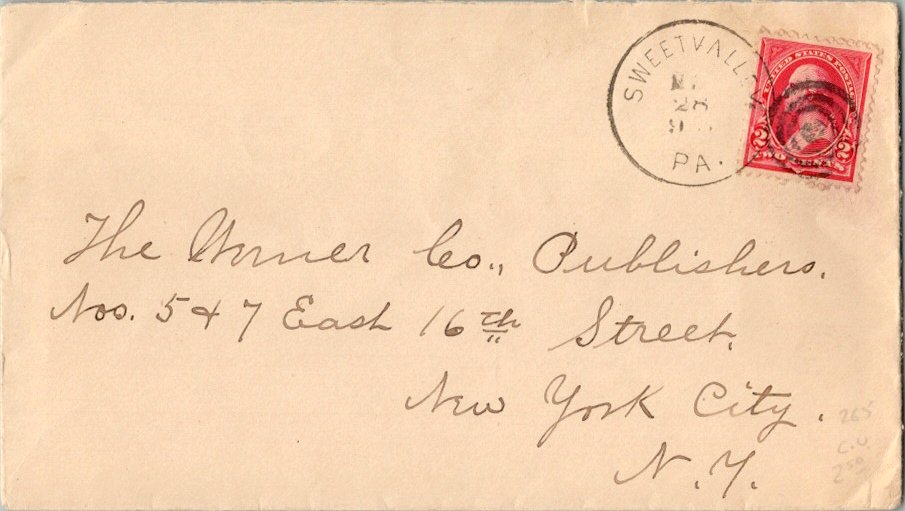 SWEET VALLEY
28
PA.
UNITED STATES POSTAGE
2 2
TWO CENTS
The Werner Co., Publishers.
Nos. 5 & 7 East 16th Street.
New York City.
N.Y.
265
C.U.
2 50